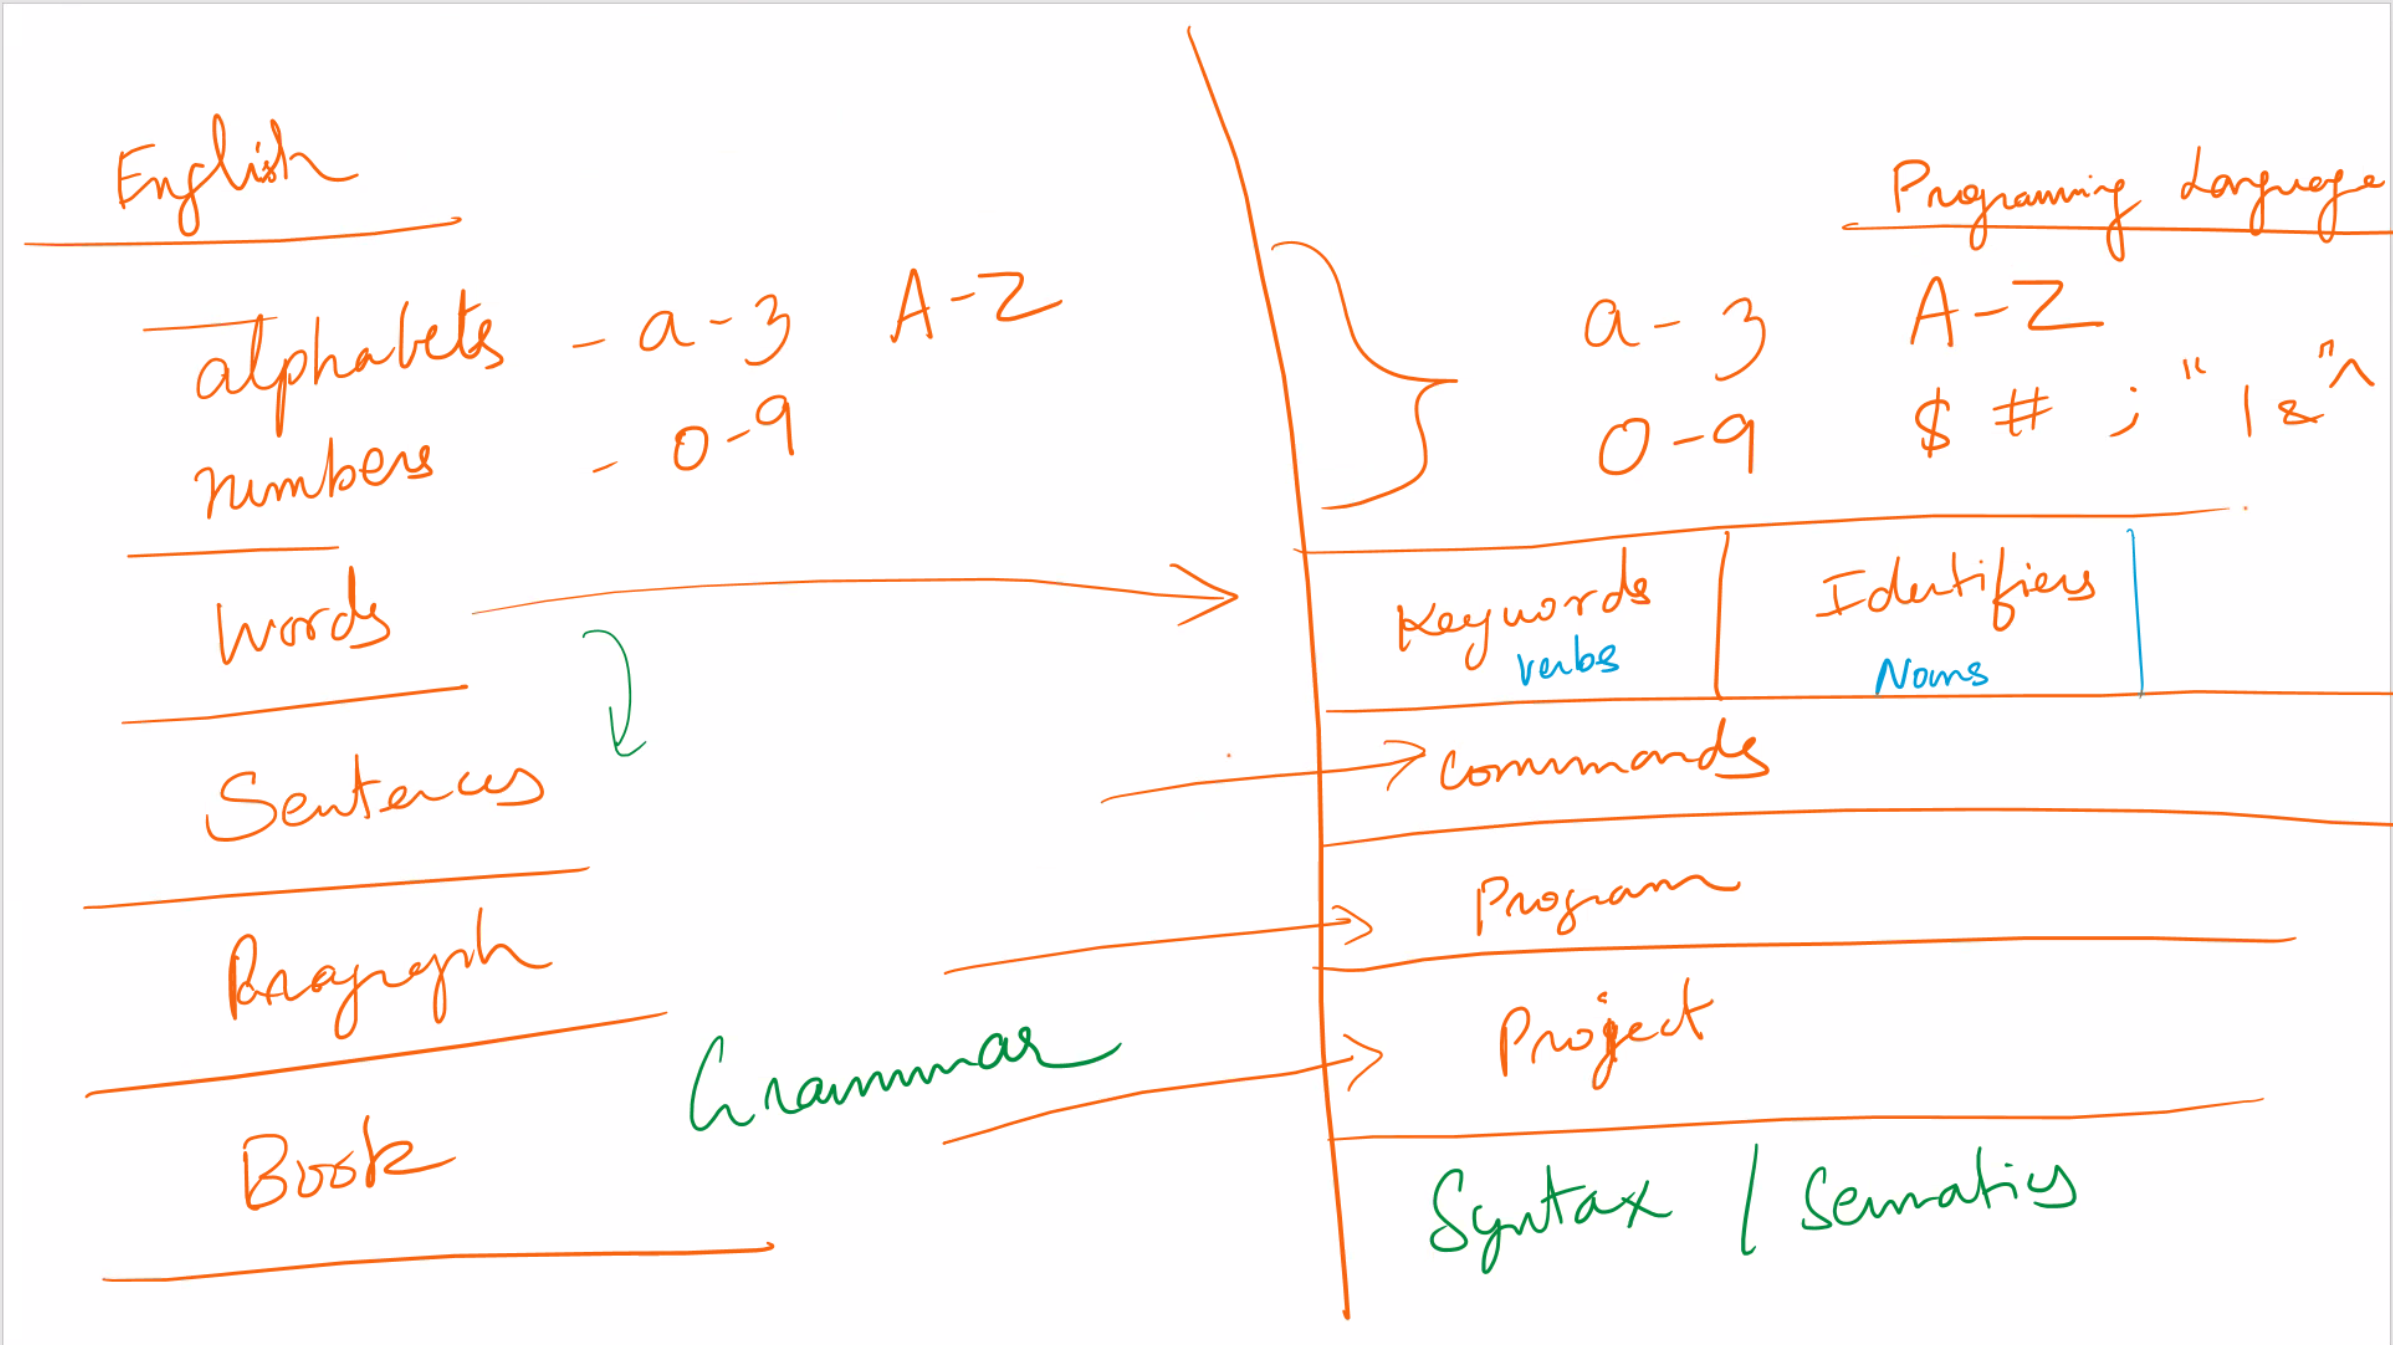 English
alphabets - a-z A-Z
numbers - 0-9
Words
Sentences
Paragraph
Book
Grammar
Programming Language
a-z A-Z
0-9 $ # ; " | & " ^
Keywords Identifiers
verbs Nouns
Commands
Program
Project
Syntax / Sematics